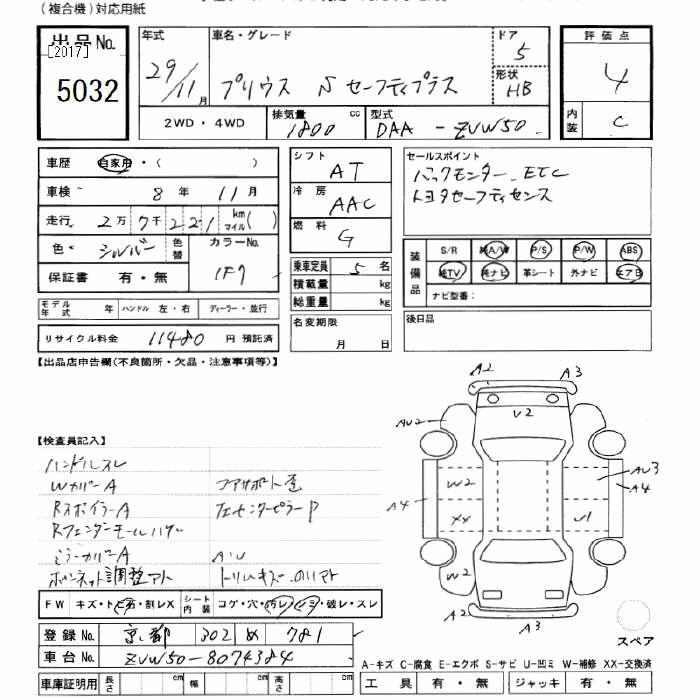 (複合機)対応用紙
出品No.
[2017]
5032
年式
29/11月
車名・グレード
プリウス Sセーフティプラス
ドア
5
形状
HB
評価点
4
内装
C
2WD・4WD
排気量
1800 cc
型式
DAA - ZVW50
車歴 自家用・( )
車検 8年 11月
走行 2万7千221 km マイル( )
色 シルバー
色替
カラーNo.
1F7
保証書 有・無
シフト
AT
冷房
AAC
燃料
G
セールスポイント
バックモニター ETC
トヨタセーフティセンス
乗車定員 5名
積載量 kg
総重量 kg
装備品
S/R 純A/W P/S P/W ABS
純TV 純ナビ 革シート 外ナビ エアB
ナビ型番:
モデル年式 年 ハンドル 左・右 ディーラー・並行
名変期限
月 日
後日品
リサイクル料金 11480円 預託済
【出品店申告欄(不良箇所・欠品・注意事項等)】
【検査員記入】
ハンドルスレ
WカバーA
コアサポート歪
RスポイラーA
左センターピラーP
Rフェンダーモールハガレ
ミラーカバーA
AU
ボンネット調整アト
A2
A3
AU2
V2
W2
AU3
A4
A4
XX
U1
W2
A2
A3
スペア
FW キズ・トビ石・割レX
シート内装 コゲ・穴・汚レ・シミ・破レ・スレ
登録No. 京都 302 め 781
車台No. ZVW50-8074384
A-キズ C-腐食 E-エクボ S-サビ U-凹ミ W-補修 XX-交換済
車庫証明用 長さ cm 幅 cm 高さ cm
工具 有・無 ジャッキ 有・無